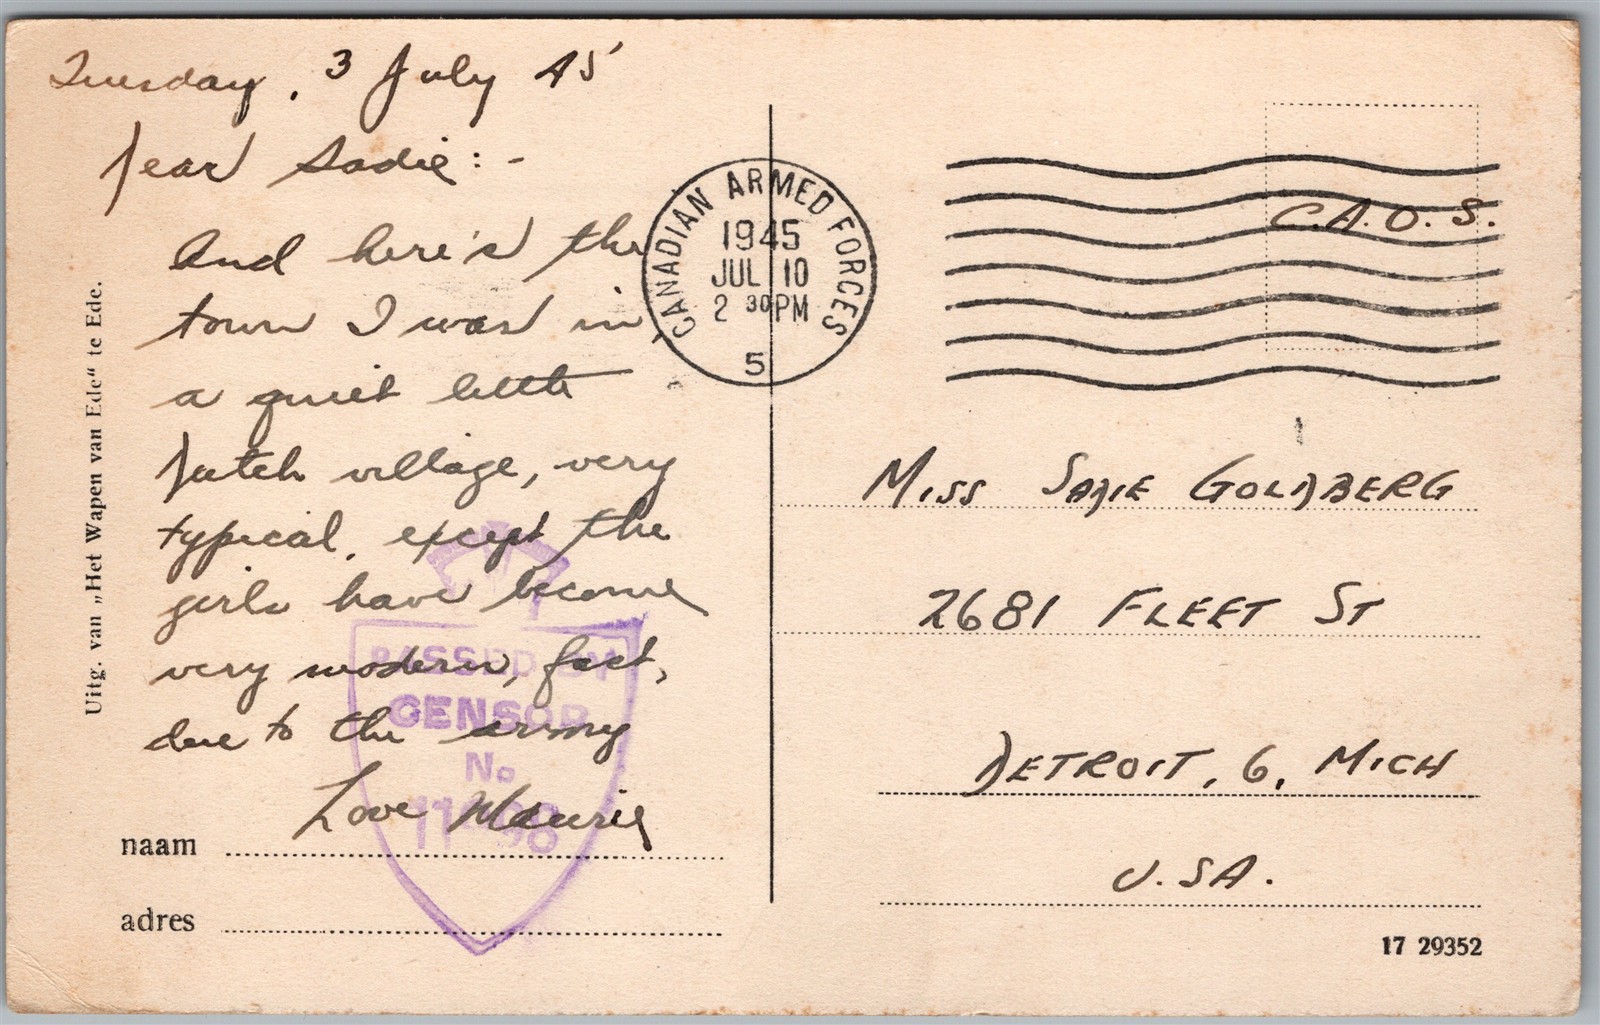 Tuesday, 3 July 45
Dear Sadie: -
And here's the
town I was in
a quiet little
Dutch village, very
typical, except the
girls have become
very modern, fast,
due to the army
Love Maurie
naam
adres
Uitg. van „Het Wapen van Ede“ te Ede.
PASSED BY
CENSOR
No
CANADIAN ARMED FORCES
1945
JUL 10
2 30 PM
5
C.A.O.S.
MISS SADIE GOLDBERG
2681 FLEET ST
DETROIT, 6, MICH
U.S.A.
17 29352